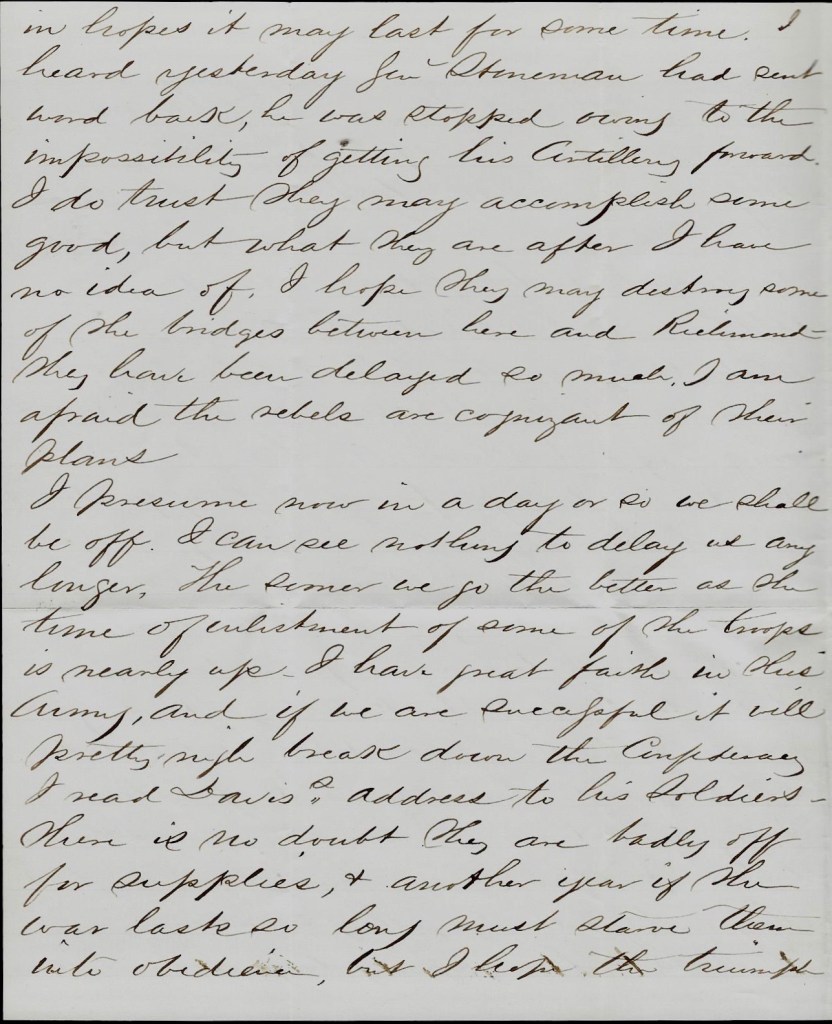 in hopes it may last for some time. I
heard yesterday Genl Stoneman had sent
word back, he was stopped owing to the
impossibility of getting his Artillery forward.
I do trust they may accomplish some
good, but what they are after I have
no idea of. I hope they may destroy some
of the bridges between here and Richmond-
they have been delayed so much. I am
afraid the rebels are cognizant of their
plans
I presume now in a day or so we shall
be off. I can see nothing to delay us any
longer. The sooner we go the better as the
time of enlistment of some of the troops
is nearly up - I have great faith in this
Army, and if we are successful it will
pretty nigh break down the Confederacy
I read Davis's address to his Soldiers-
there is no doubt they are badly off
for supplies, & another year if the
war lasts so long must starve them
into obedience, but I hope the triumph